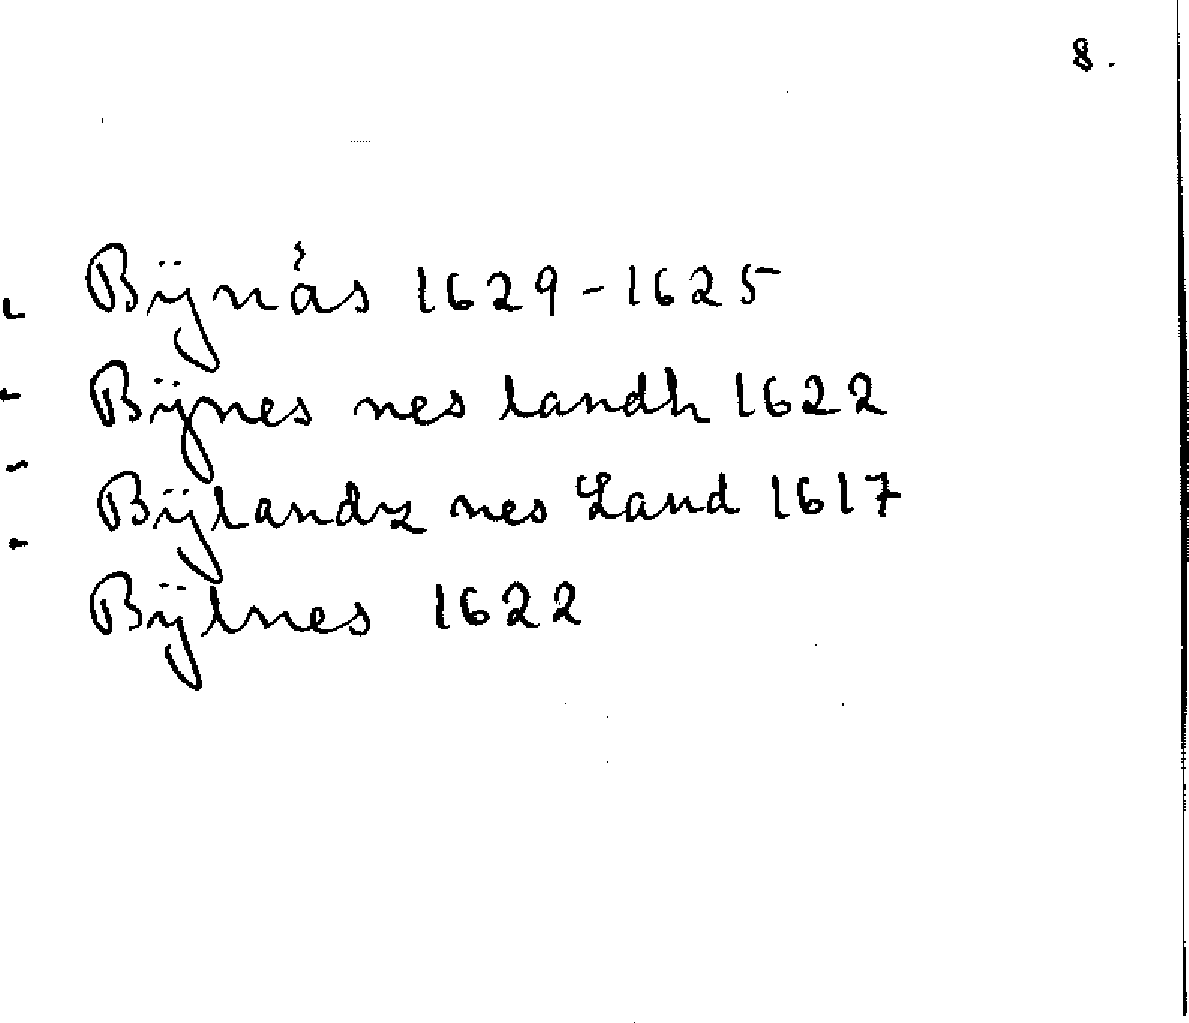 8.
Bÿnås 1629-1625
Bÿnes nes landh 1622
Bÿlandz nes Land 1617
Bÿlnes 1622